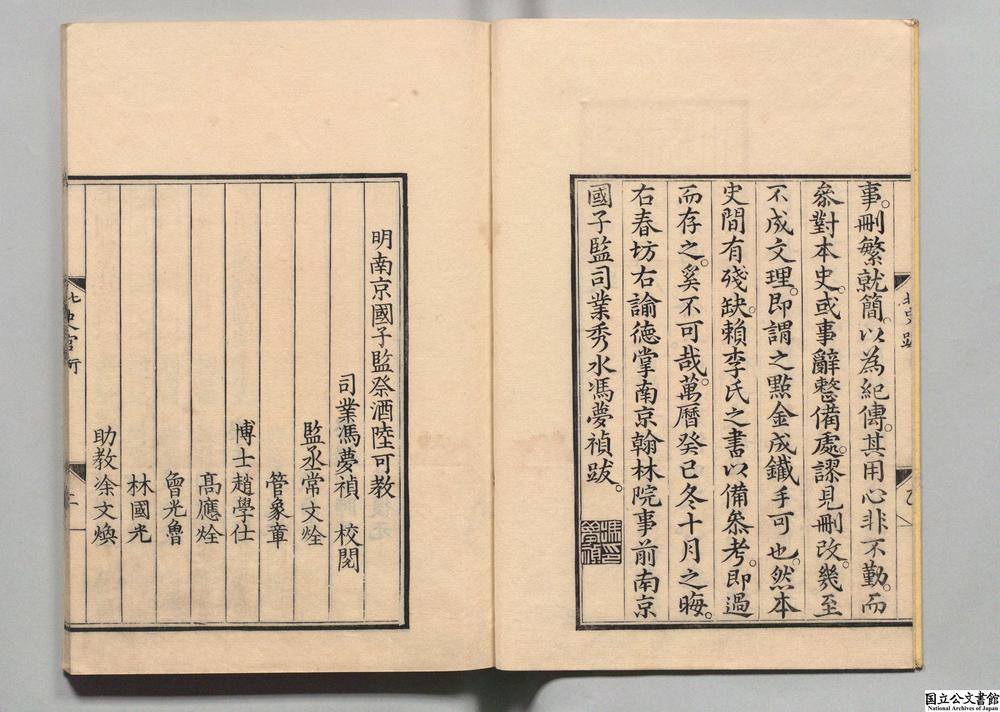 事。刪繁就簡。以為紀傳。其用心非不勤。而
叅對本史。或事辭整備處。謬見刪改。幾至
不成文理。即謂之點金成鐵手可也。然本
史間有殘缺。賴李氏之書以備叅考。即過
而存之。奚不可哉。萬曆癸巳冬十月之晦。
右春坊右諭德掌南京翰林院事前南京
國子監司業秀水馮夢禎跋。
北史跋
明南京國子監祭酒陸可教
司業馮夢禎 校閱
監丞常文烇
管象章
博士趙學仕
高應烇
魯光魯
林國光
助教凃文煥
北史官所
国立公文書館
National Archives of Japan